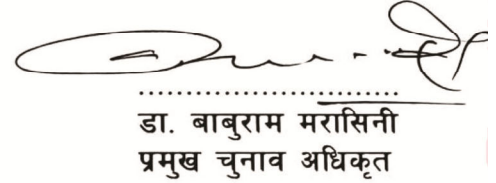 ............................
डा. बाबुराम मरासिनी
प्रमुख चुनाव अधिकृत